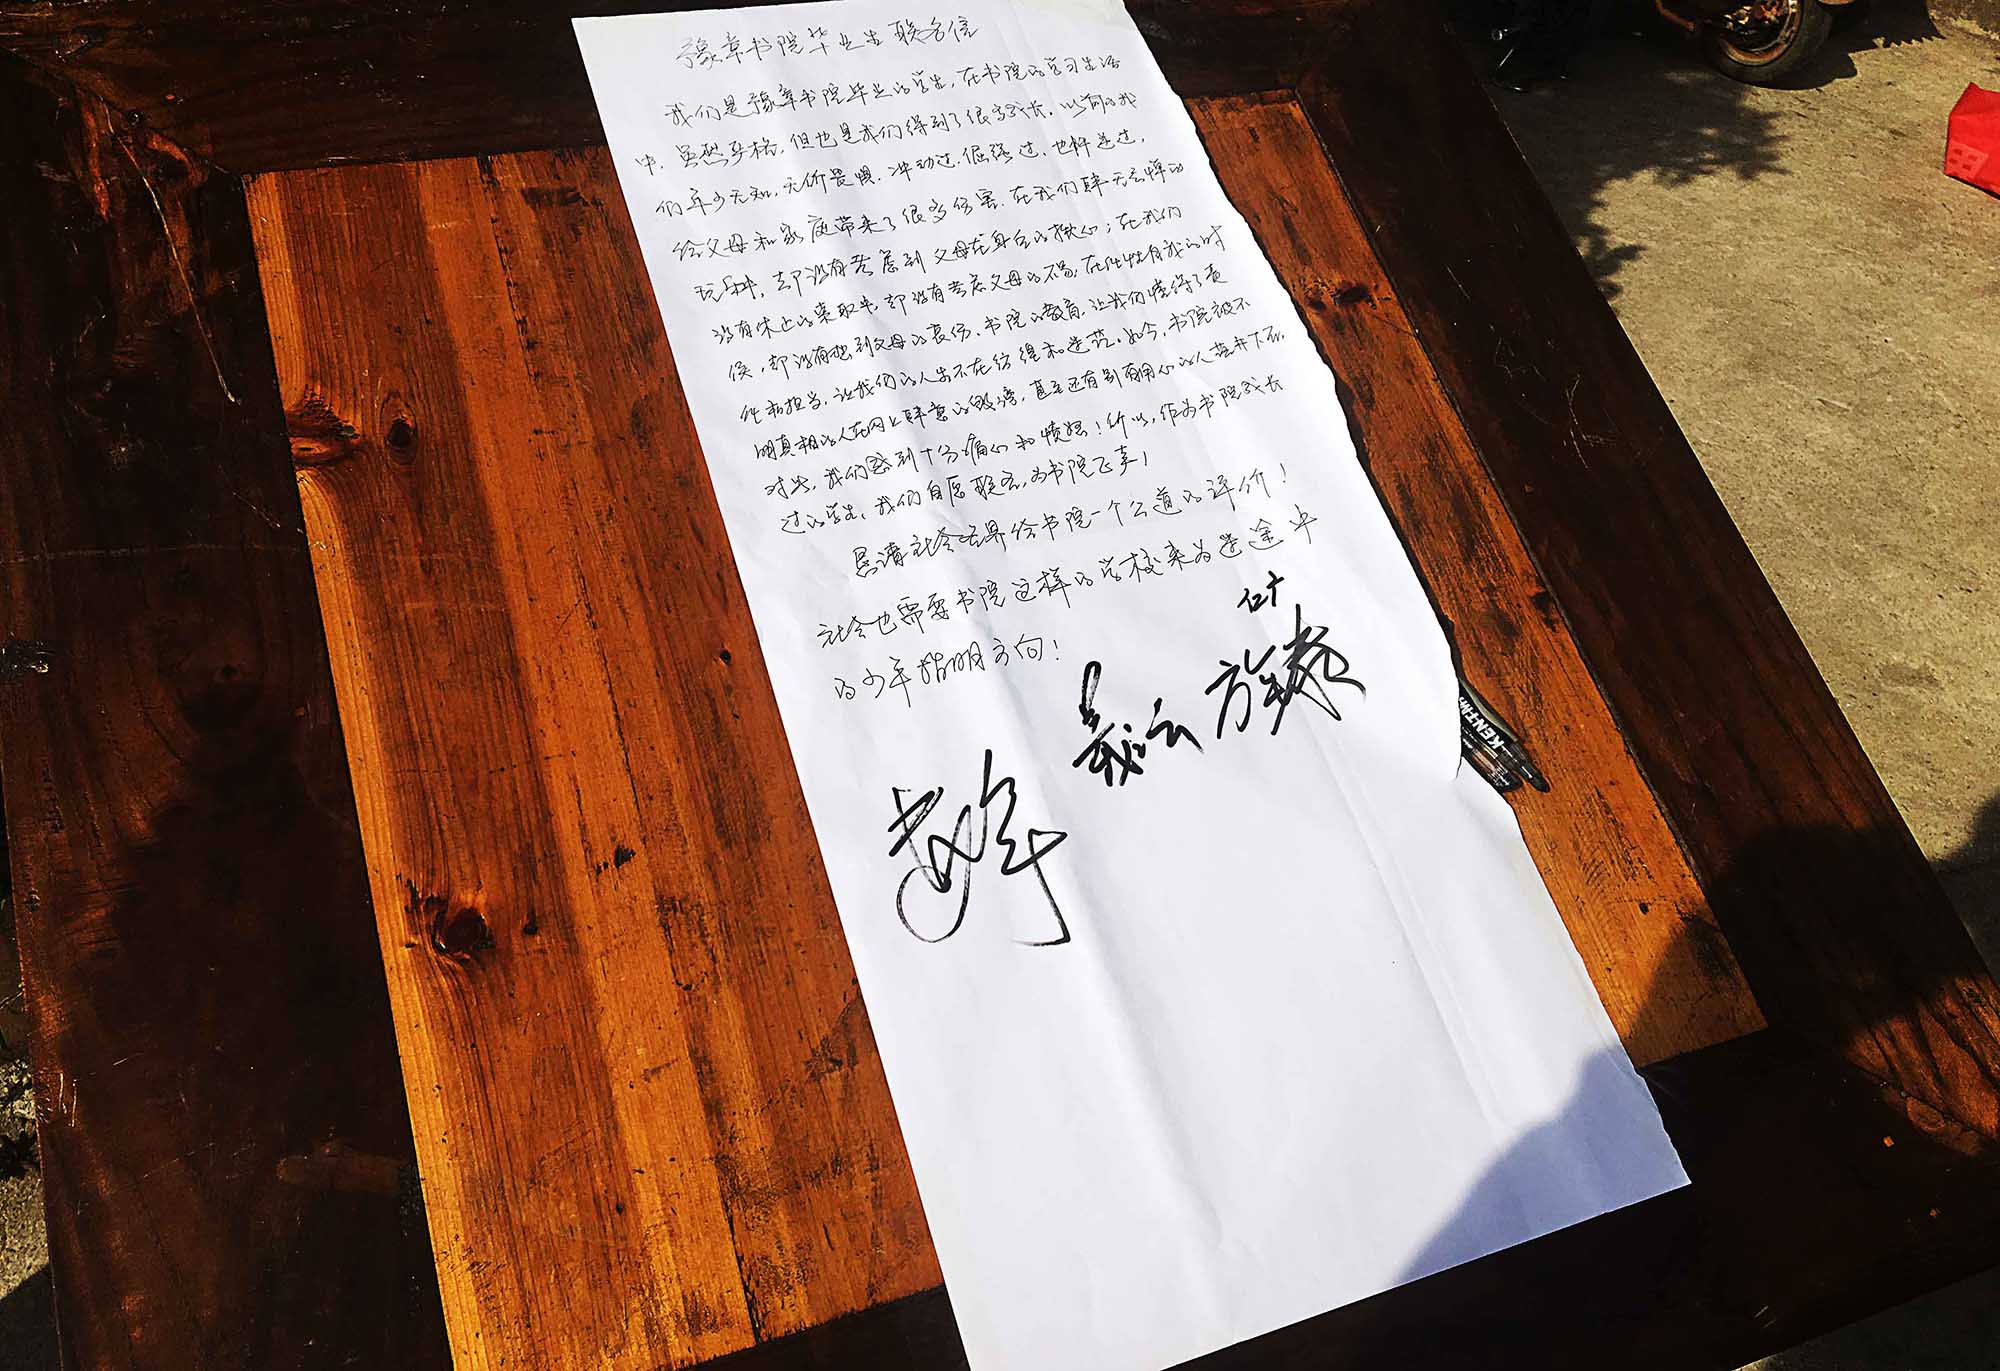 豫章书院毕业生联名信
我们是豫章书院毕业的学生，在书院的学习生活
中，虽然严格，但也是我们得到了很多成长。以前的我
们年少无知，无所畏惧，冲动过，倔强过，也忤逆过，
给父母和家庭带来了很多伤害，在我们肆无忌惮的
玩耍中，却没有考虑到父母在身后的揪心；在我们
没有休止的索取中，却没有考虑父母的不易，在任性自我的时
侯，却没有想到父母的哀伤，书院的教育，让我们懂得了责
任和担当，让我们的人生不在彷徨和迷茫。如今，书院被不
明真相的人在网上肆意的毁谤，甚至还有别有用心的人落井下石，
对此，我们感到十分痛心和愤怒！所以，作为书院成长
过的学生，我们自愿联名，为书院正真！
恳请社会各界给书院一个公道的评价！
社会也需要书院这样的学校来为迷途中
的少年指明方向！
KENTM